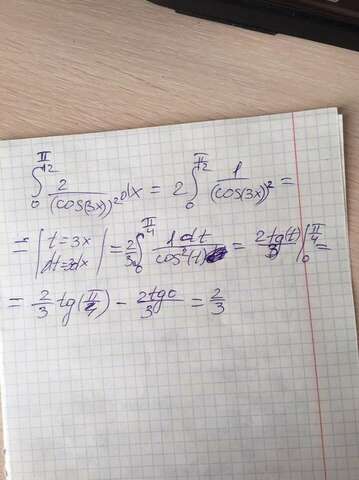 ∫₀^(π/12) 2/(cos(3x))² dx = 2 ∫₀^(π/12) 1/(cos(3x))² =
= | t = 3x dt = 3dx | = 2/3 ∫₀^(π/4) 1 dt/cos²(t) = 2tg(t)/3 |₀^(π/4) =
= 2/3 tg(π/4) − 2tg0/3 = 2/3